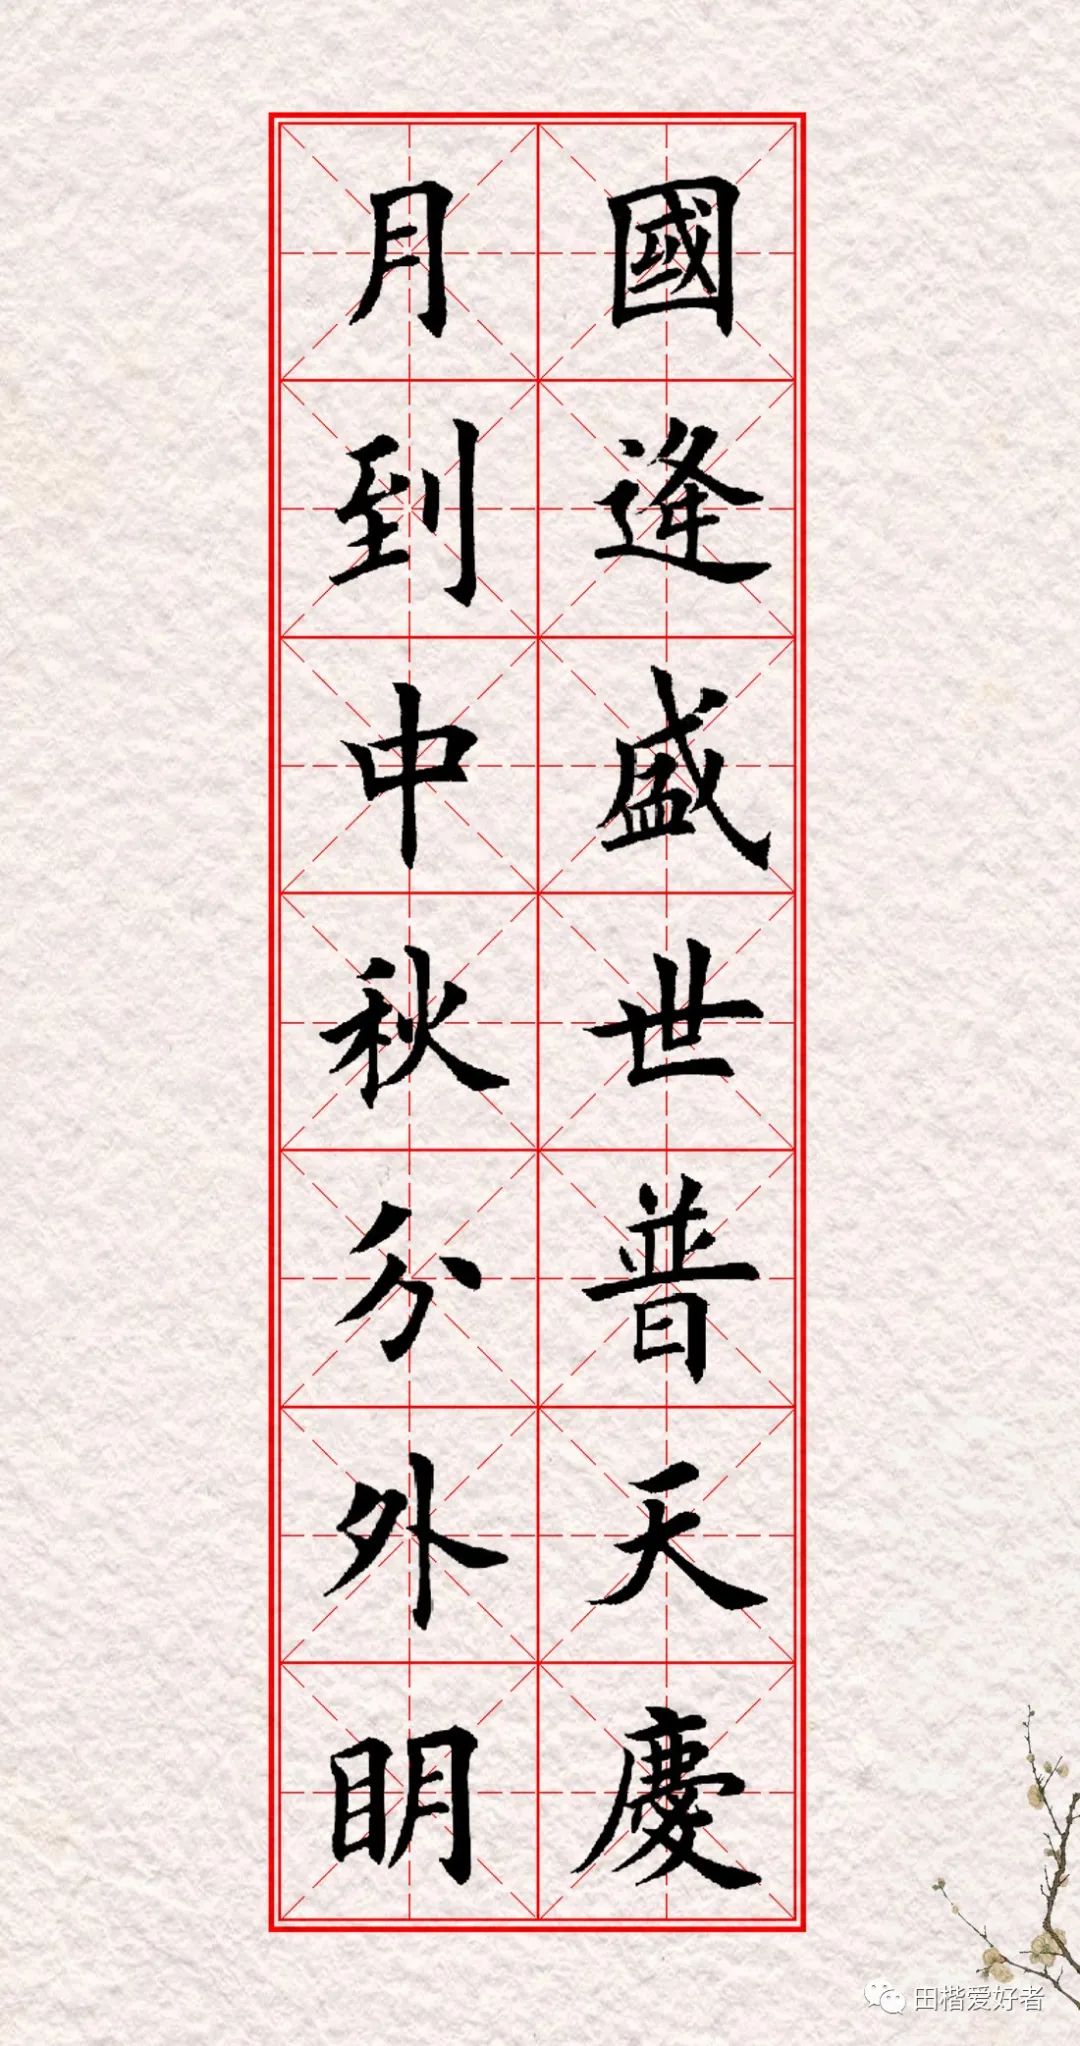 國逢盛世普天慶
月到中秋分外明
田楷爱好者